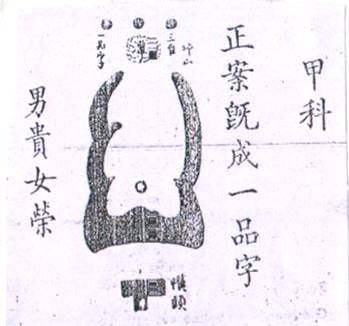 甲科
正案既成一品字
三台
一品字
幞頭
男貴女榮